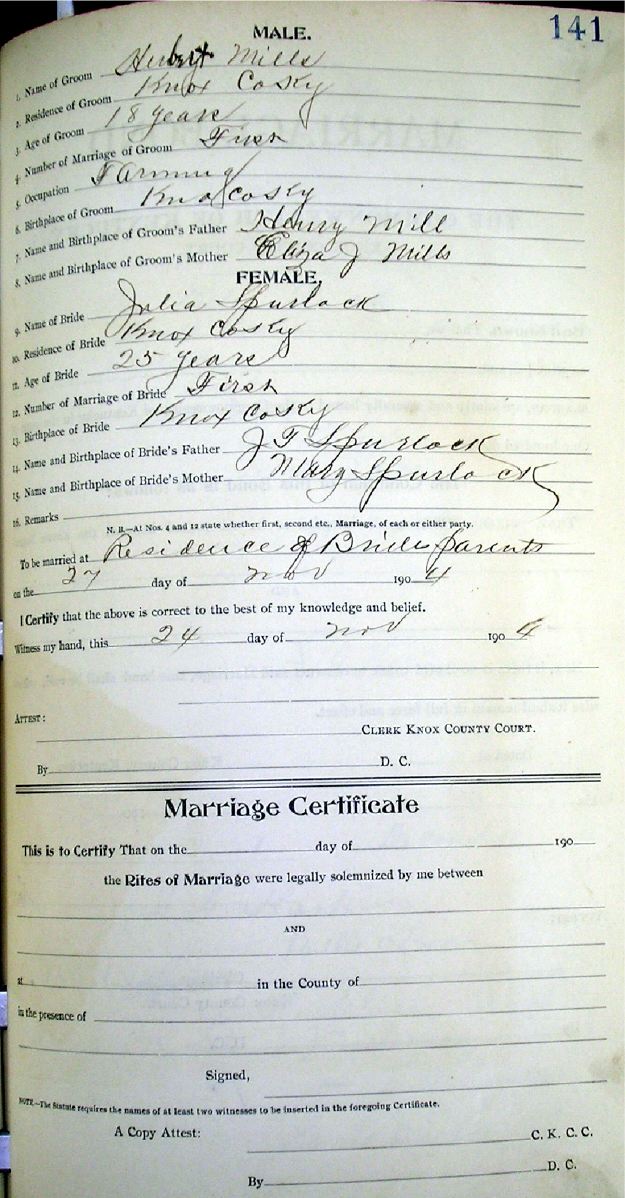 141
MALE.
1. Name of Groom Herbert Mills
2. Residence of Groom Knox Co Ky
3. Age of Groom 18 years
4. Number of Marriage of Groom First
5. Occupation Farming
6. Birthplace of Groom Knox Co Ky
7. Name and Birthplace of Groom's Father Henry Mill
8. Name and Birthplace of Groom's Mother Eliza J Mills
FEMALE.
9. Name of Bride Julia Spurlock
10. Residence of Bride Knox Co Ky
11. Age of Bride 25 years
12. Number of Marriage of Bride First
13. Birthplace of Bride Knox Co Ky
14. Name and Birthplace of Bride's Father J T Spurlock
15. Name and Birthplace of Bride's Mother Mary Spurlock
16. Remarks
N. B.—At Nos. 4 and 12 state whether first, second etc., Marriage, of each or either party.
To be married at Residence of Brides parents
on the 27 day of Nov 1904
I Certify that the above is correct to the best of my knowledge and belief.
Witness my hand, this 24 day of Nov 1904
ATTEST:
CLERK KNOX COUNTY COURT.
By D. C.
Marriage Certificate
This is to Certify That on the day of 190
the Rites of Marriage were legally solemnized by me between
AND
at in the County of
in the presence of
Signed,
NOTE.—The Statute requires the names of at least two witnesses to be inserted in the foregoing Certificate.
A Copy Attest: C. K. C. C.
By D. C.